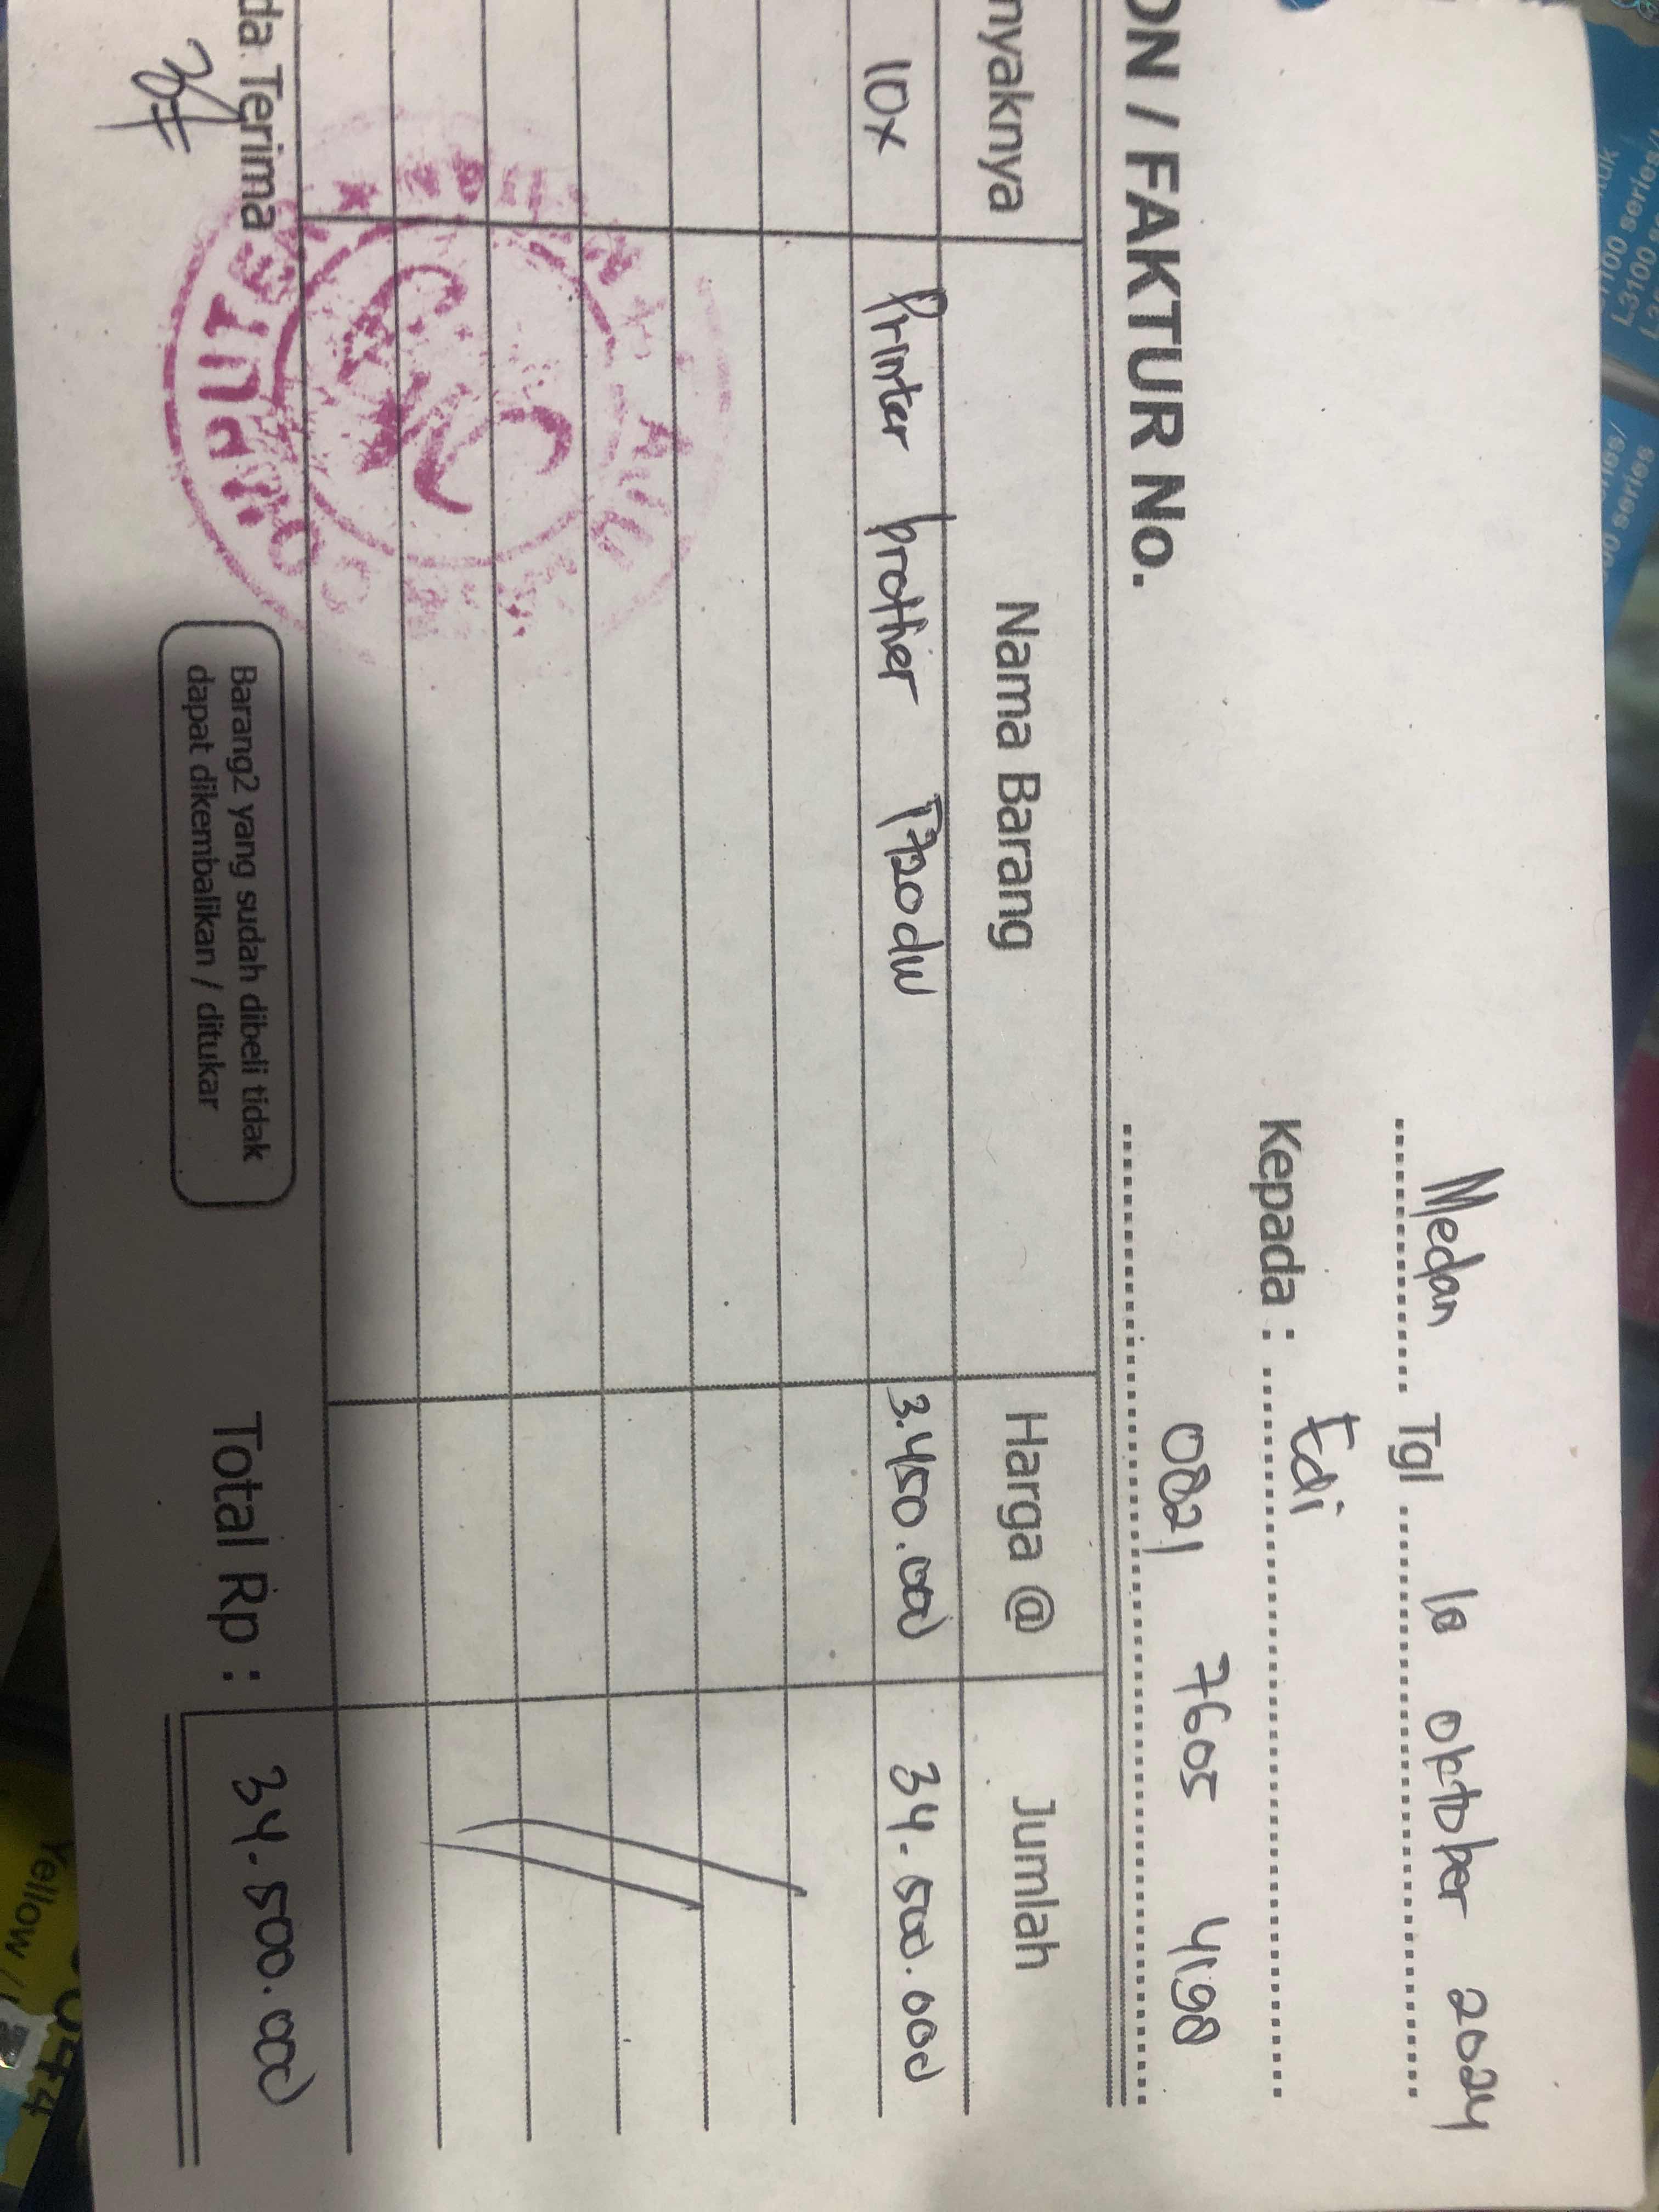 Medan Tgl 18 oktober 2024
Kepada : Edi
0821 7605 4198
ON / FAKTUR No.
nyaknya Nama Barang Harga @ Jumlah
10x Printer brother T720dw 3.450.000 34.500.000
da Terima
Barang2 yang sudah dibeli tidak
dapat dikembalikan / ditukar
Total Rp : 34.500.000
L3100
series
Yellow